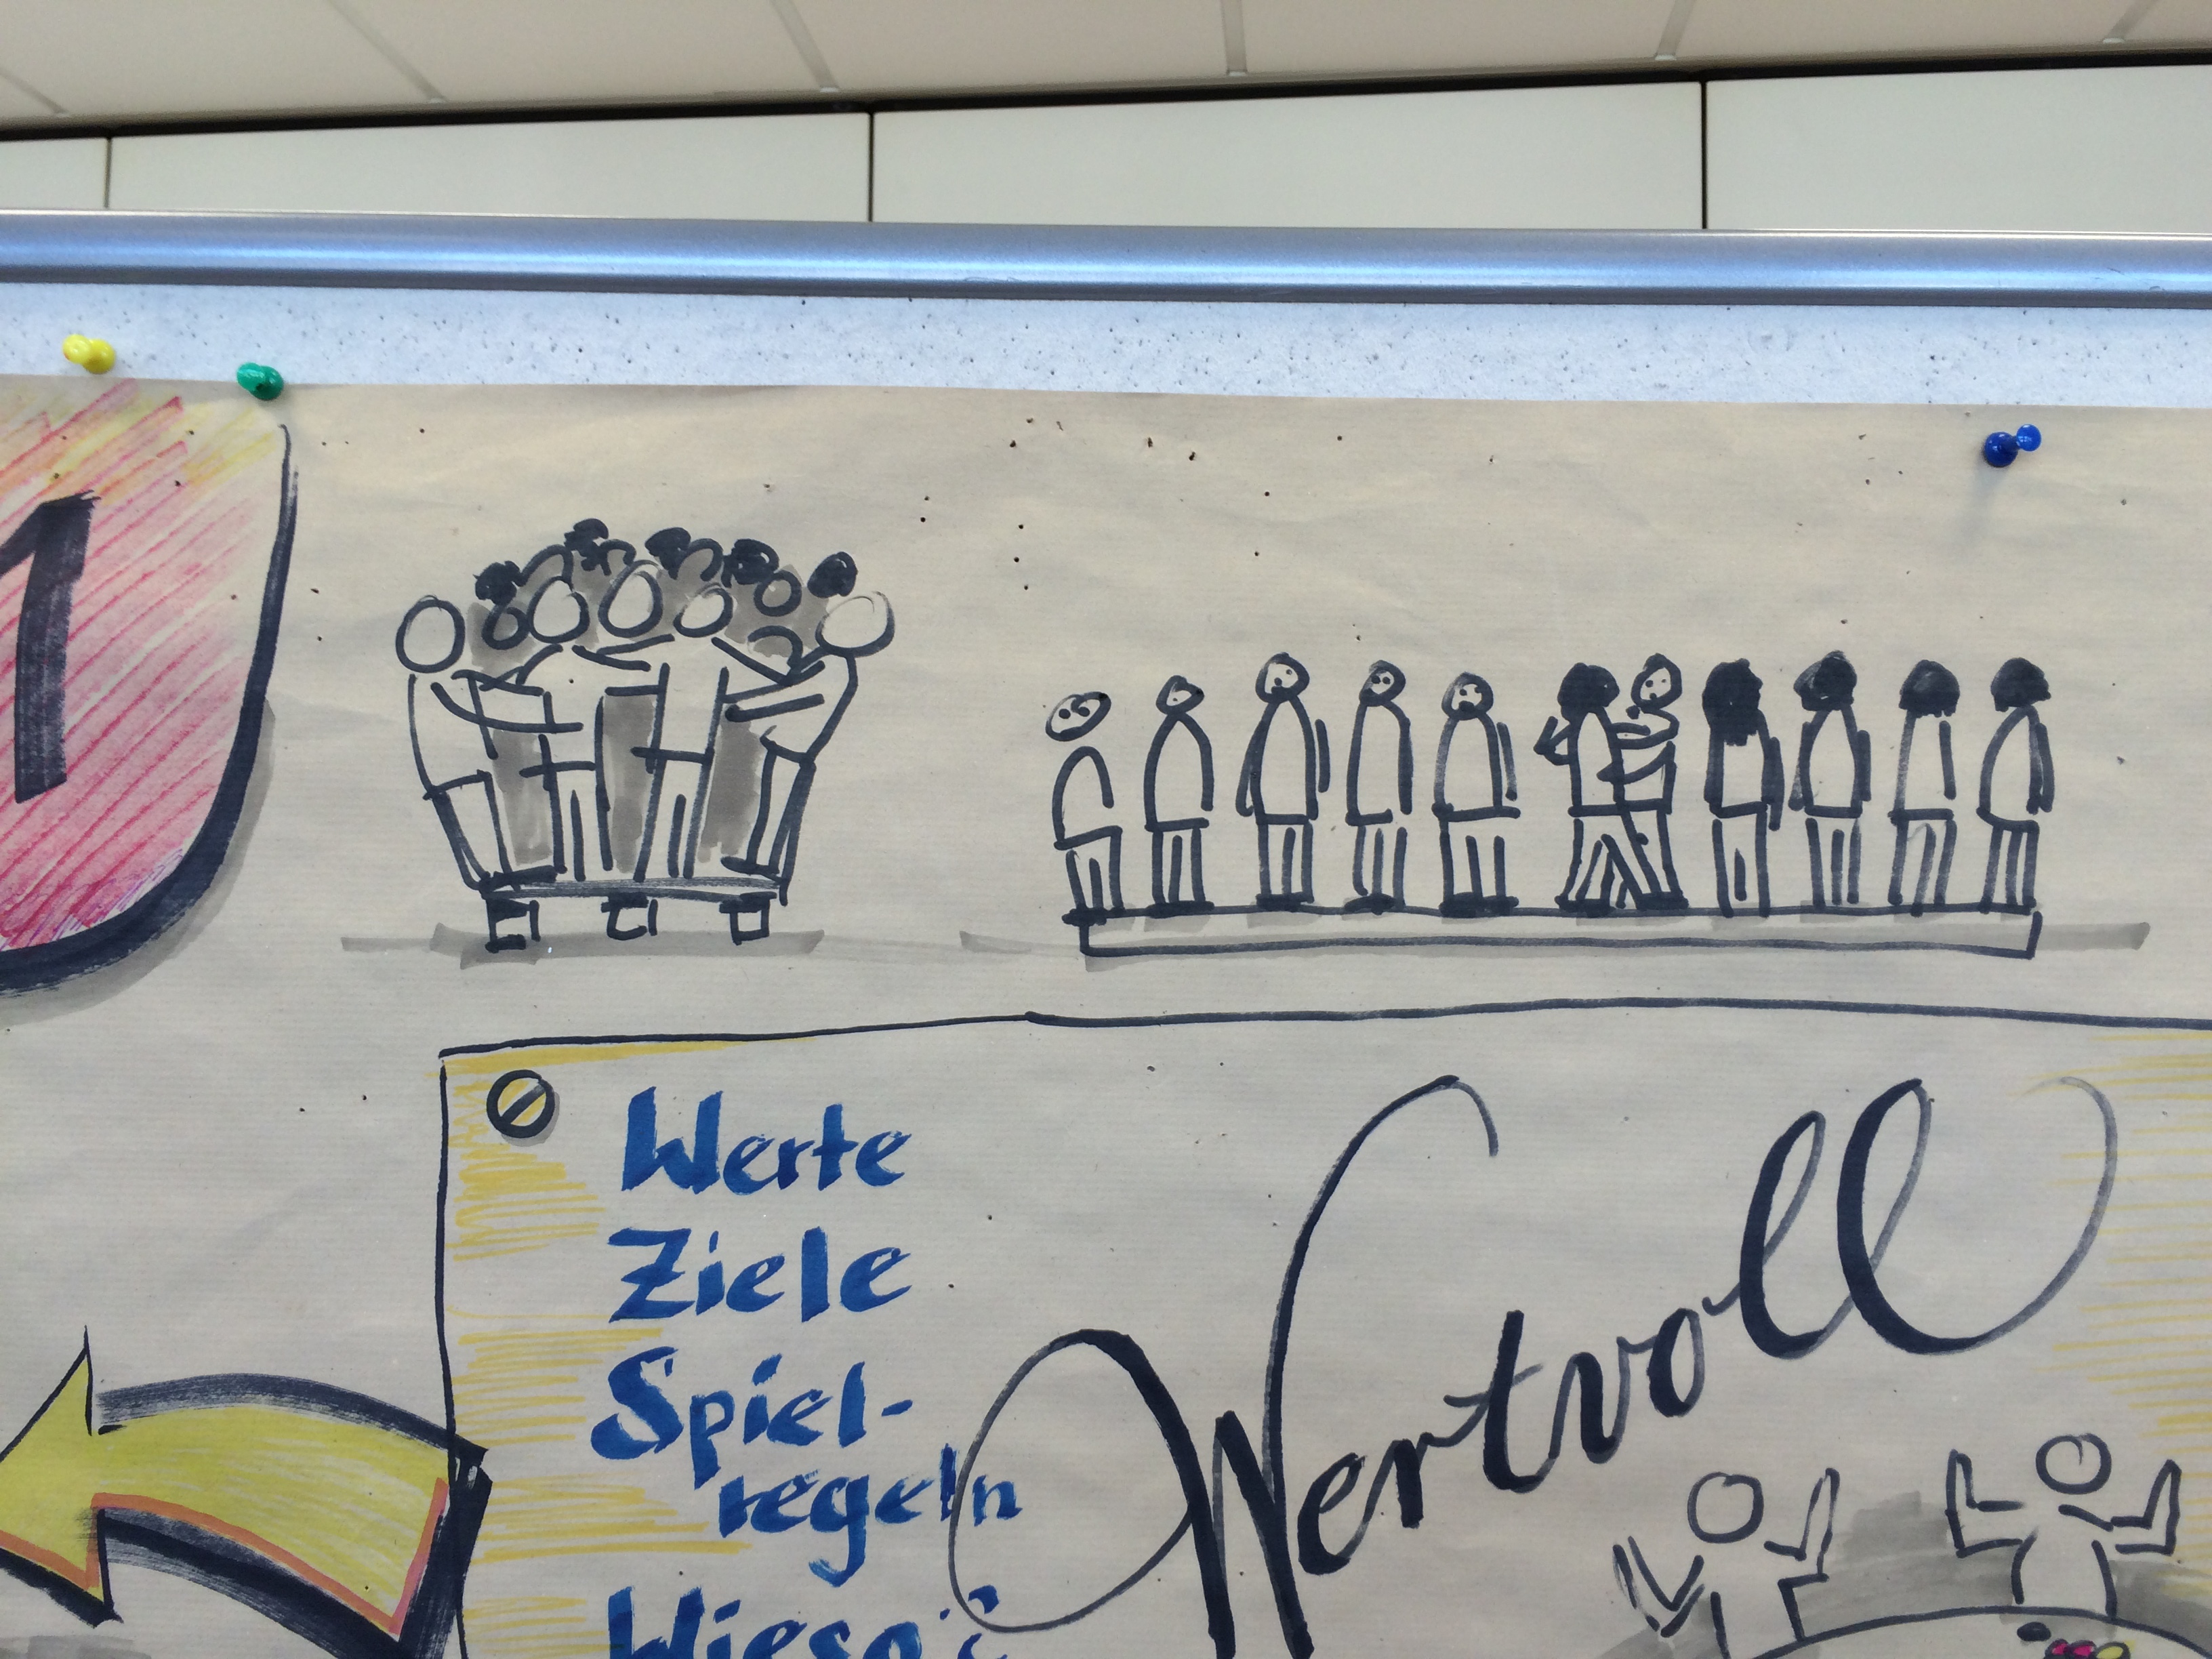 1
Werte
Ziele
Spiel-
regeln
Wieso?
Wertvoll